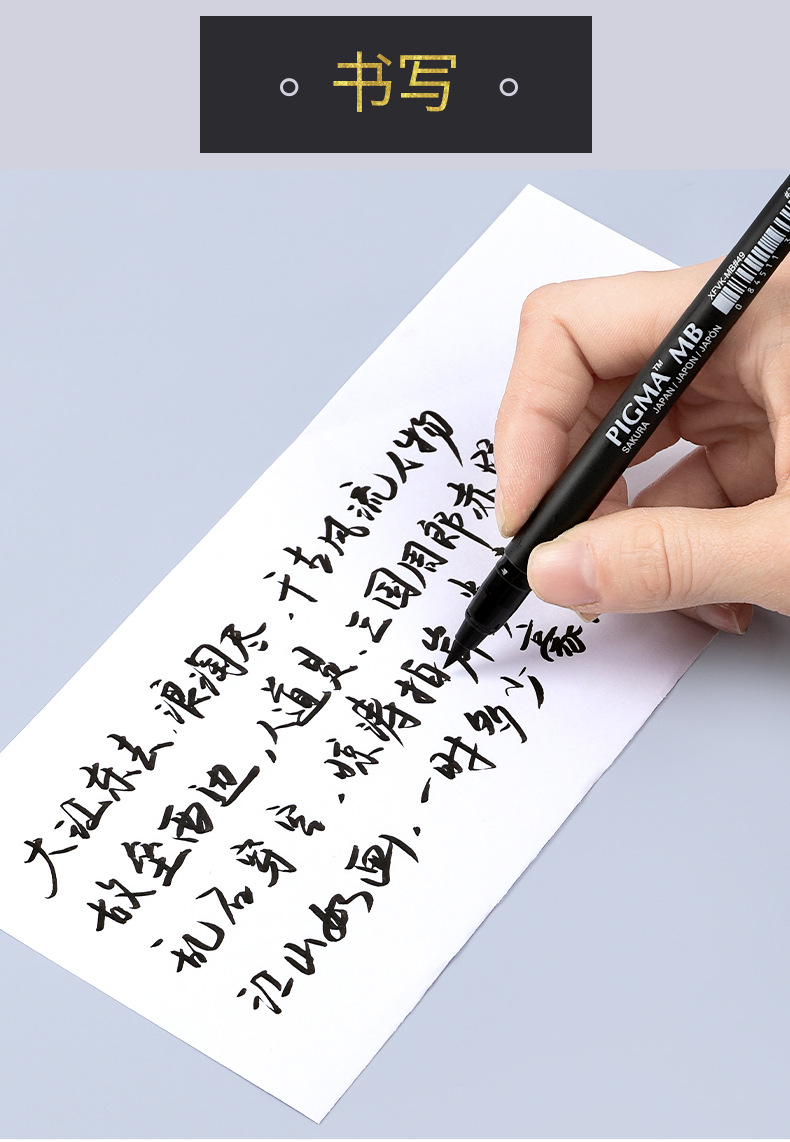 书写
大江东去,浪淘尽,千古风流人物
故垒西边,人道是、三国周郎赤
乱石穿空,惊涛拍岸
江山如画,一时多少豪
PIGMA™ MB
SAKURA JAPAN / JAPON / JAPÓN
XFVK-MB#49
0 84511 3